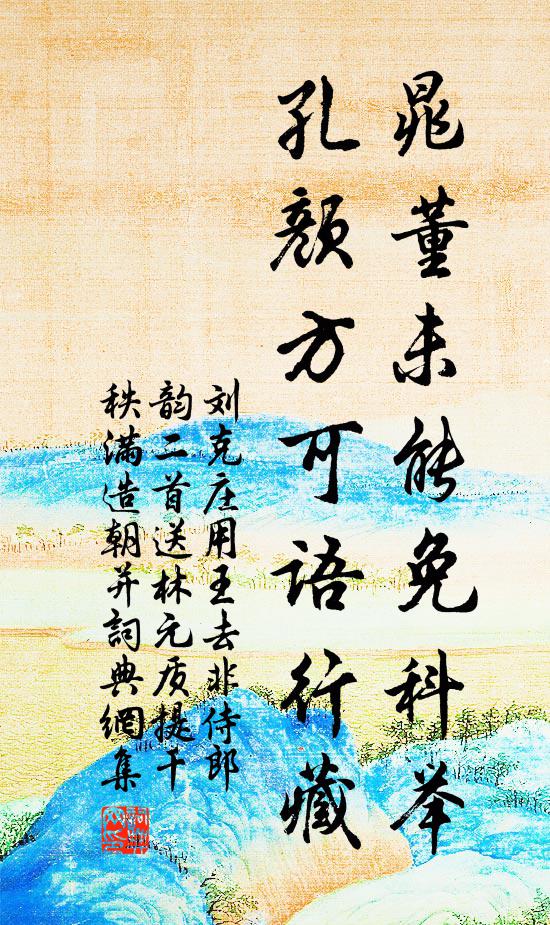 晁董未能免科举
孔颜方可语行藏
刘克庄用王去非侍郎
韵二首送林元质提干
秩满造朝并詞典網集